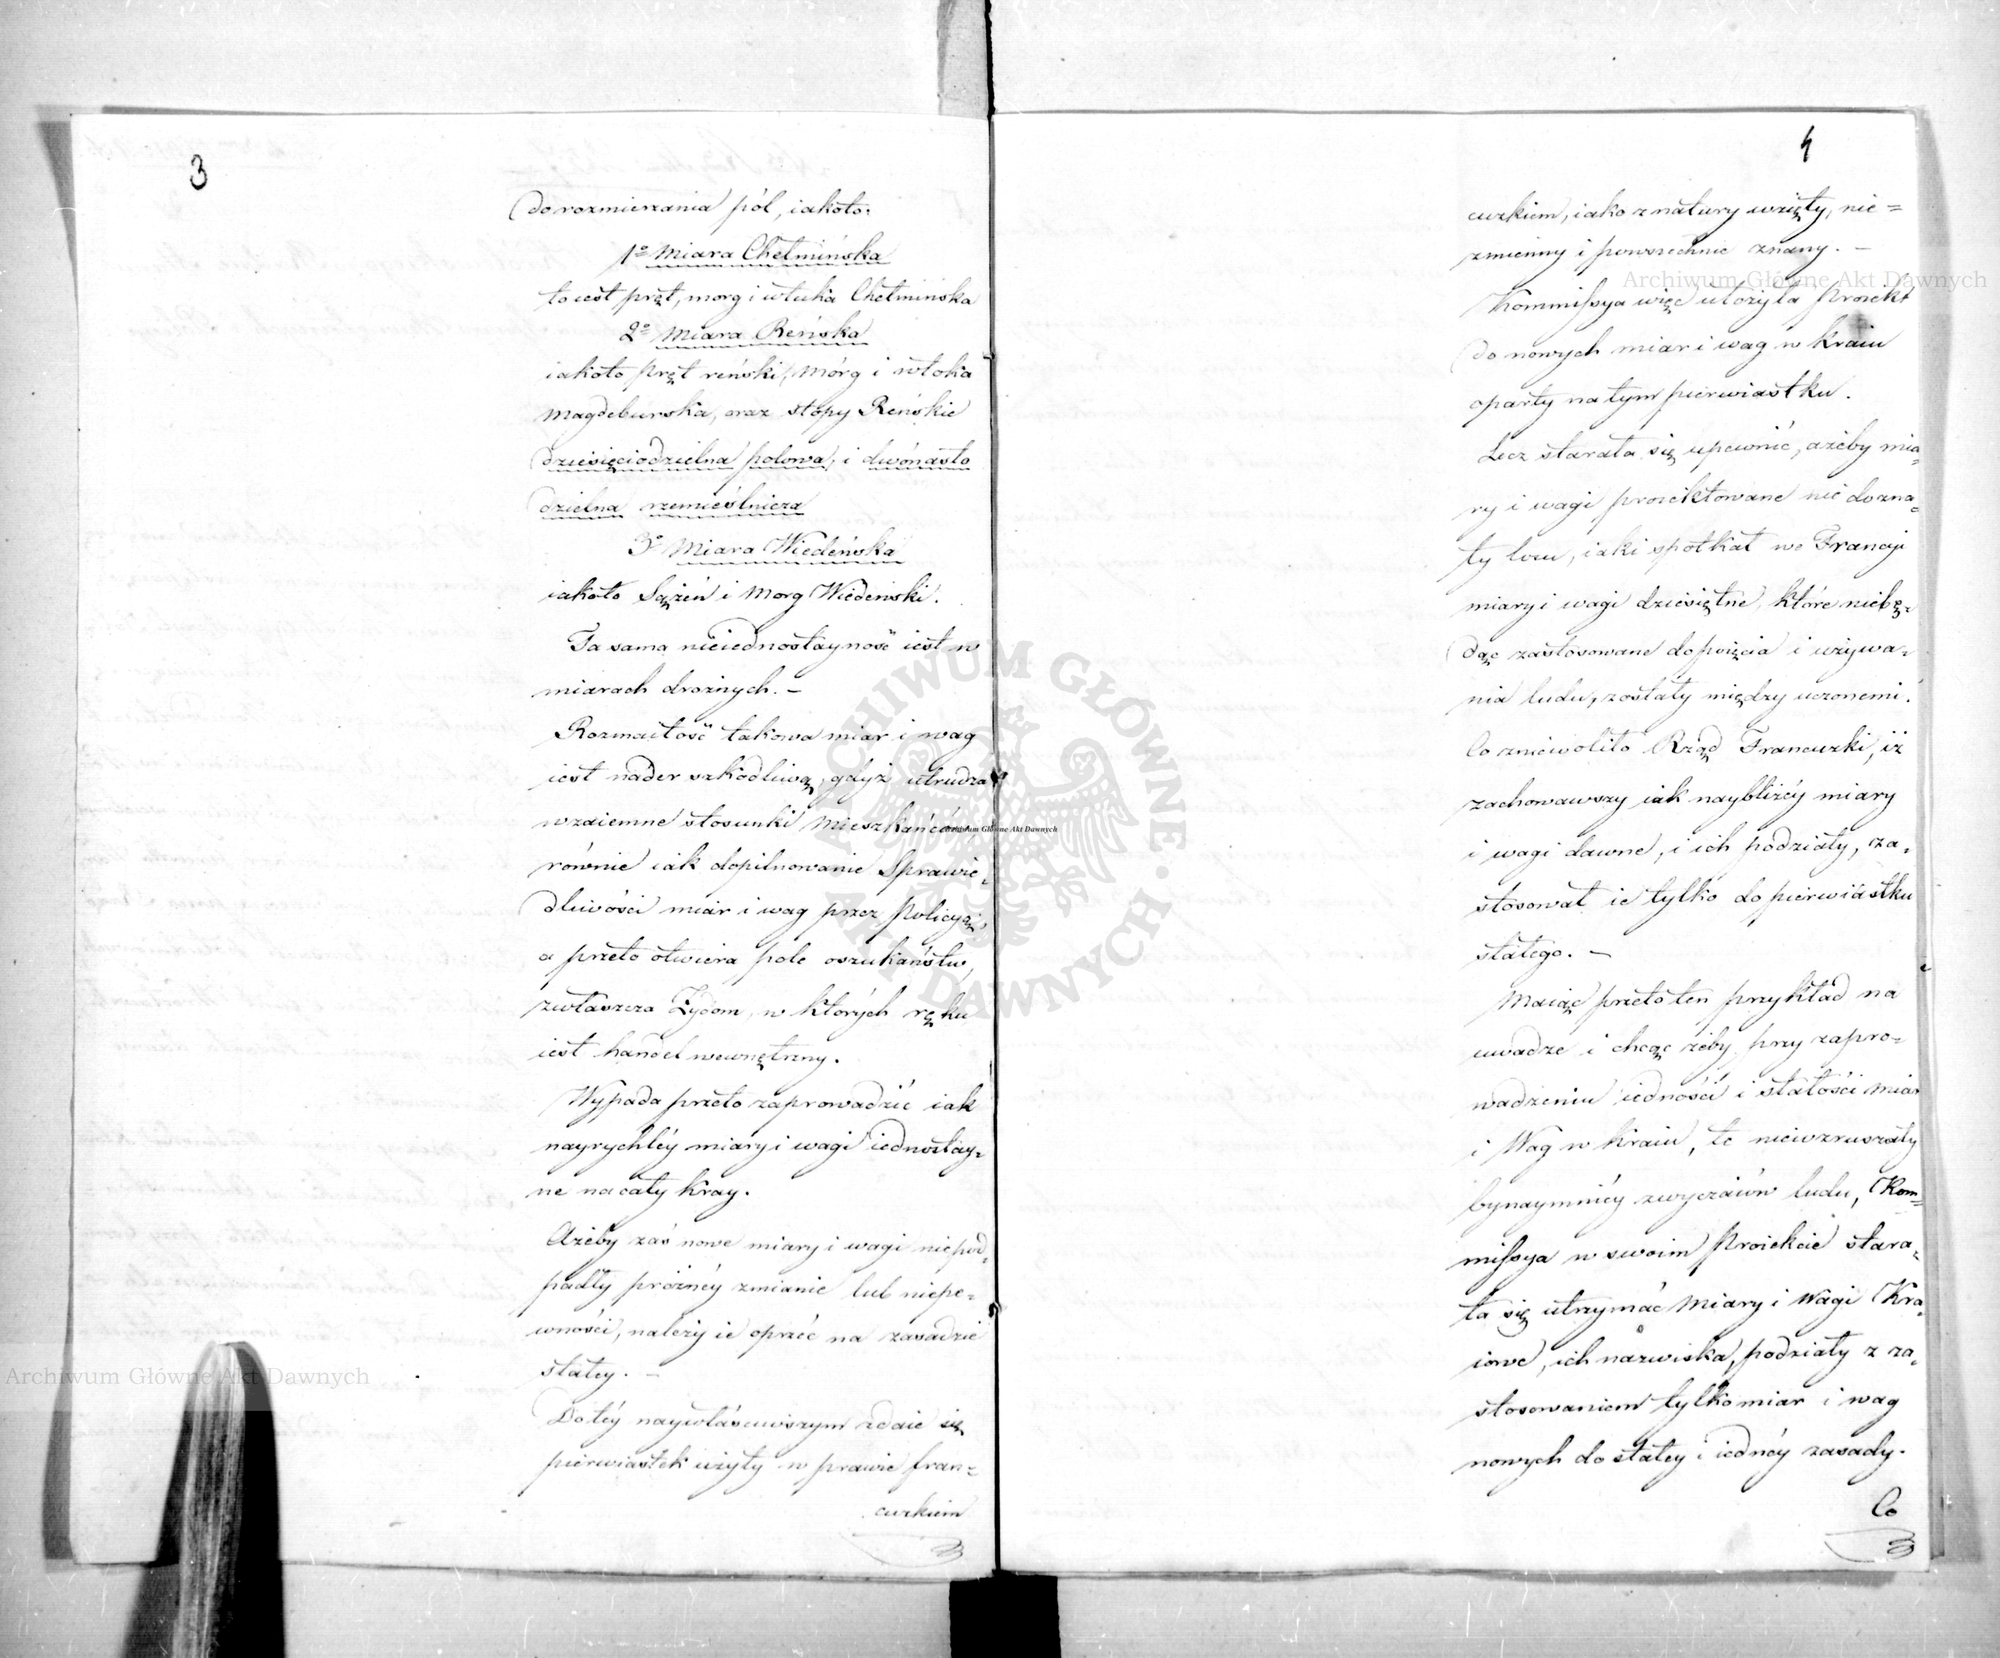 3
do rozmierzania pól, iakoto:
1o Miara Chełmińska
to iest pręt, morg i włuka Chełmińska
2o Miara Reńska
iakoto pręt reński, Mórg i włoka
Magdeburska, oraz stopy Reńskie
dziesięciodzielna polowa, i dwónasto
dzielna rzemieślnicza
3o Miara Wiedeńska
iakoto Sążeń i Morg Wiedeński.
Ta sama nieiednostayność iest w
miarach drożnych. –
Rozmaitość takowa miar i wag
iest nader szkodliwą, gdyż utrudza
wzaiemne stosunki Mieszkańców
równie iak dopilnowanie Sprawie=
dliwości miar i wag przez Policyą,
a przeto otwiera pole oszukaństw,
zwłaszcza Żydom, w których ręku
iest handel wewnętrzny.
Wypada przeto zaprowadzić iak
nayrychléy miary i wagi iednostay=
ne na cały kray.
Ażeby zaś nowe miary i wagi niepod=
padły próżnéy zmianie lub niepe=
wności, należy ie oprzéć na zasadzie
stałey. –
Do téy naywłaściwszym zdaie się
pierwiastek użyty w prawie fran=
cuzkiem
4
cuzkiem, iako z natury wzięty, nie=
zmienny i powszechnie znany. –
Kommissya więc ułożyła Proiekt
do nowych miar i wag w kraiu
oparty na tym pierwiastku.
Lecz starała się upewnić, ażeby mia=
ry i wagi proiektowane nie dozna=
ły losu, iaki spotkał we Francyi
miary i wagi dziesiętne, które niebę=
dąc zastosowane do poięcia i używa=
nia ludu, zostały między uczonemi.
Co zniewoliło Rząd Francuzki, iż
zachowawszy iak naybliżéy miary
i wagi dawne, i ich podziały, za=
stosował ie tylko do pierwiastku
stałego. –
Maiąc przeto ten przykład na
uwadze i chcąc żeby przy zapro=
wadzeniu iedności i stałości Miar
i Wag w kraiu, te niewzruszały
bynaymniéy zwyczaiów ludu, Kom=
missya w swoim Proiekcie stara=
ła się utrzymać Miary i Wagi Kra=
iowe, ich nazwiska, podziały z za=
stosowaniem tylko miar i wag
nowych do stałey i iednéy zasady.
Co
Archiwum Główne Akt Dawnych
Archiwum Główne Akt Dawnych
Archiwum Główne Akt Dawnych
ARCHIWUM GŁÓWNE AKT DAWNYCH